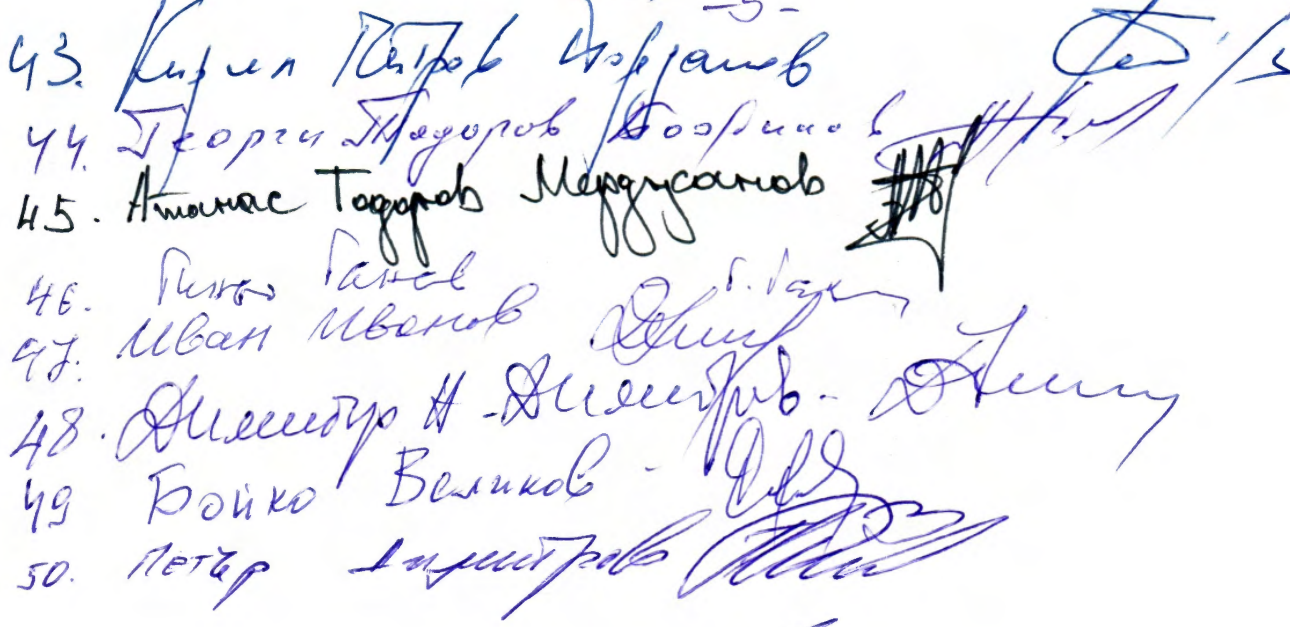 -5-
43. Кирил Петров Йорданов
44. Георги Тодоров
45. Атанас Тодоров Мерджанов
46. Ганев Г. Ган
47. Иван Иванов
48. Димитър Н - Димитров -
49 Бойко Великов -
50. Петър Димитров